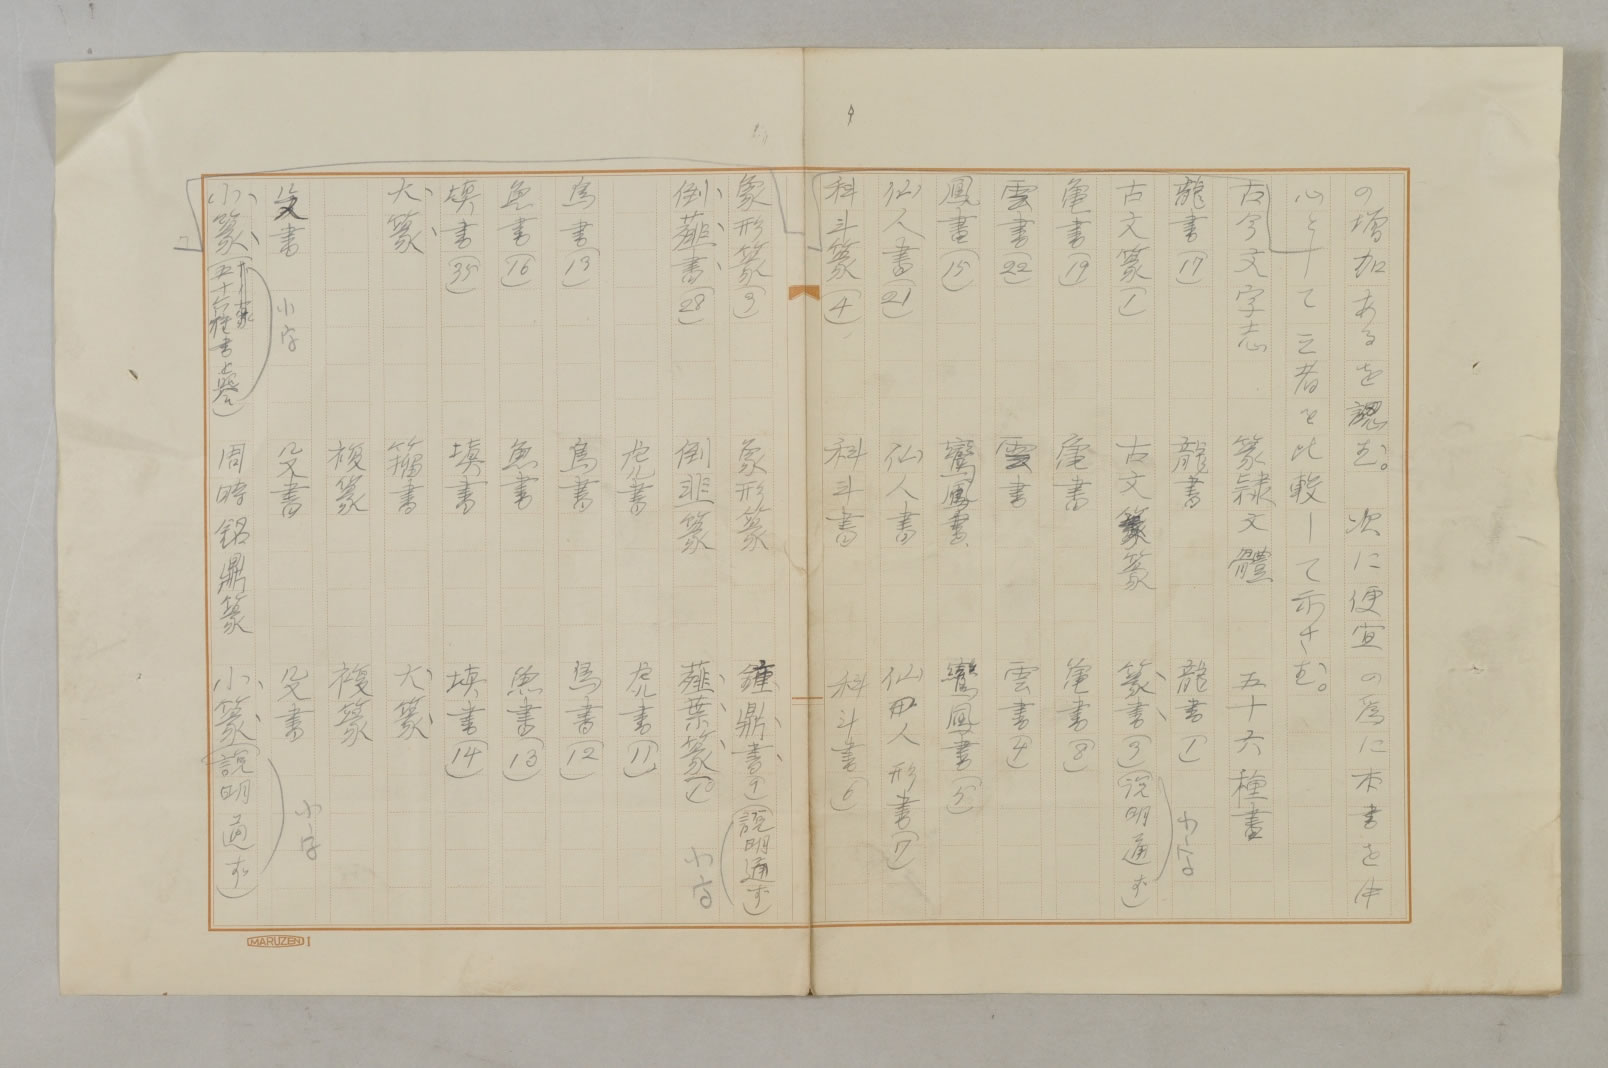 の増加あるを認む。次に便宜の為に本書を中
心として三者を比較して示さむ。
古今文字志 篆隷文體 五十六種書
龍書(17) 龍書 龍書(1) 小字
古文篆(1) 古文篆 篆書(3)(説明通ず)
亀書(19) 亀書 亀書(8)
雲書(22) 雲書 雲書(4)
鳳書(15) 鸞鳳書 鸞鳳書(5)
仙人書(21) 仙人書 仙人形書(7)
科斗篆(4) 科斗書 科斗書(6)
象形篆(3) 象形篆 鐘鼎書(9)(説明通ず)
倒薤書(28) 倒韭篆 薤葉篆(10) 小字
虎書 虎書(11)
鳥書(13) 鳥書 鳥書(12)
魚書(16) 魚書 魚書(13)
填書(35) 填書 填書(14)
大篆 籀書 大篆
複篆 複篆
殳書 小字 殳書 殳書 小字
小篆(五十六種書と合) 周時銘鼎篆 小篆(説明通ず)
MARUZEN